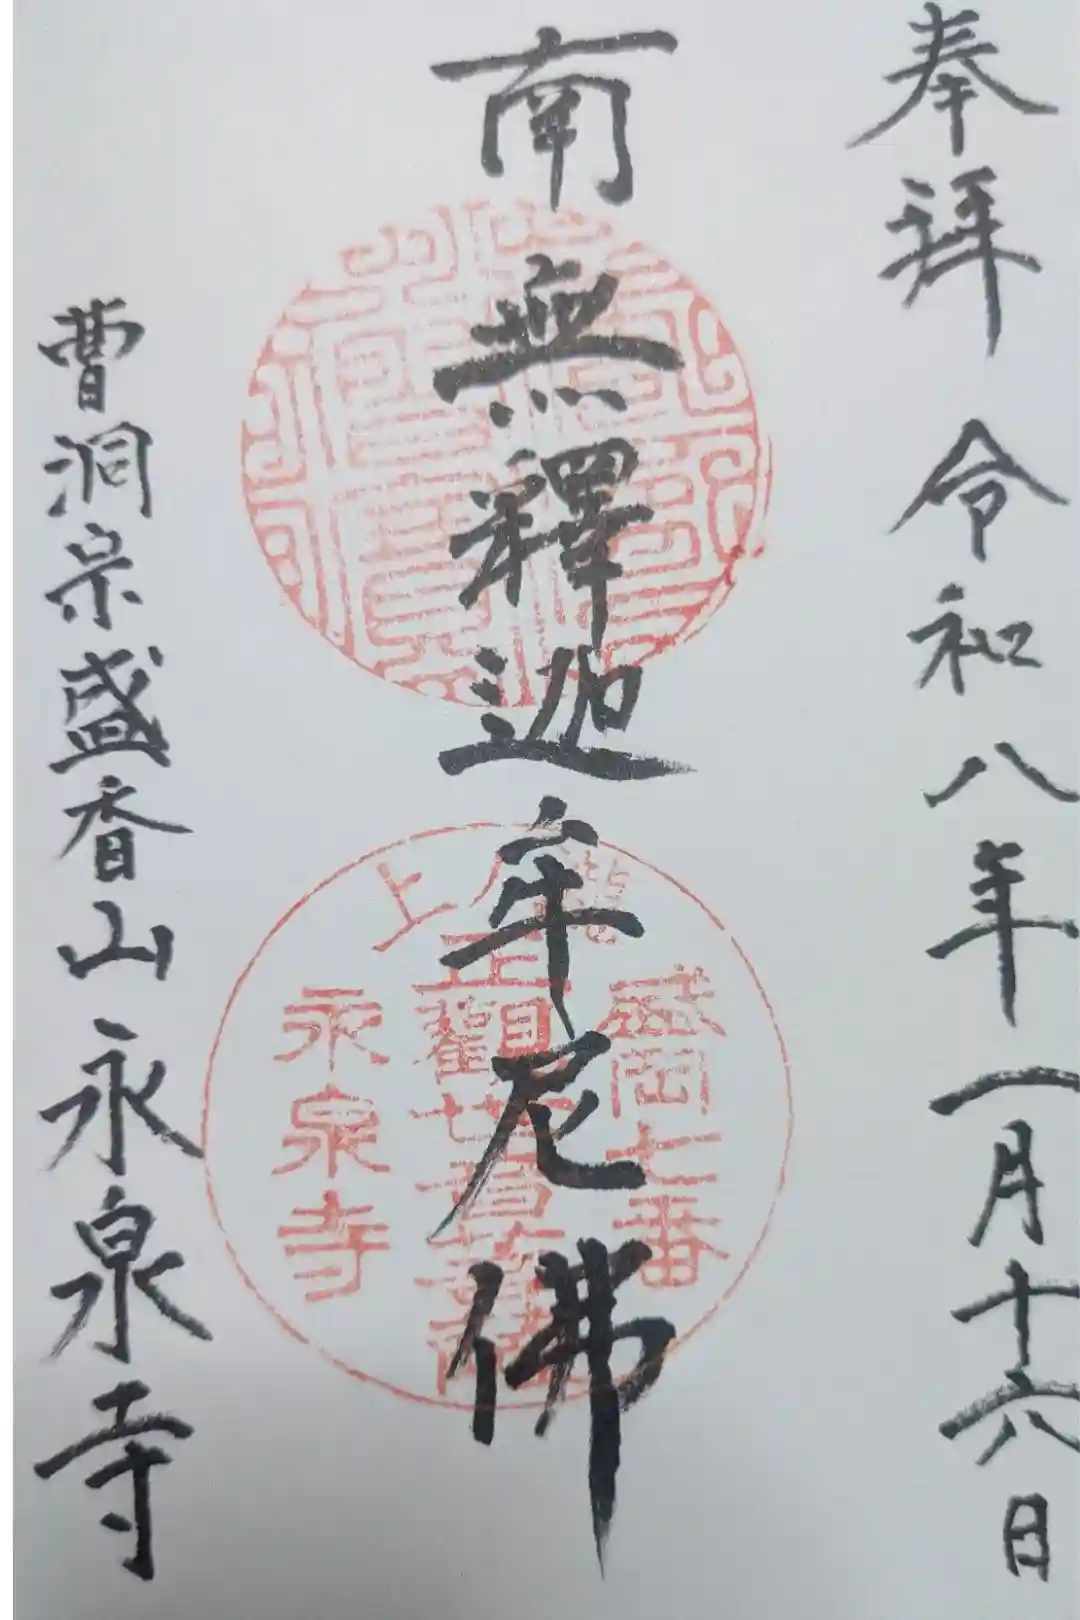 奉拜 令和八年一月十六日
南無釋迦牟尼佛
盛岡七番
正觀世音菩薩
永泉寺
曹洞宗盛香山永泉寺